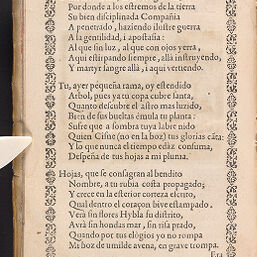 Por donde a los estremos de la tierra
Su bien disciplinada Compañia
A penetrado, haziendo ilustre guerra
A la gentilidad, i apostasia:
Al que sin luz, al que con ojos yerra,
Aqui estirpando siempre, allà instruyendo,
Y martyr sangre allà, i aqui vertiendo.
Tu, ayer pequeña rama, oy estendido
Arbol, pues ya tu copa cubre santa,
Quanto descubre el astro mas luzido,
Bien de sus bueltas émula tu planta:
Sufre que a sombra tuya labre nido
Quien Cisne (no en la boz) tus glorias cãta:
Y lo que nunca el tiempo edaz consuma,
Despeña de tus hojas a mi pluma.
Hojas, que se consagran al bendito
Nombre, a tu rubia costa propagado;
Y crece en la esterior corteza escrito,
Qual dentro el coraçon bive estampado,
Verà sin flores Hybla su distrito,
Avrà sin hondas mar, sin risa prado,
Quando por tus elógios yo no rompa
Mi boz de umilde avena, en grave trompa.
Era